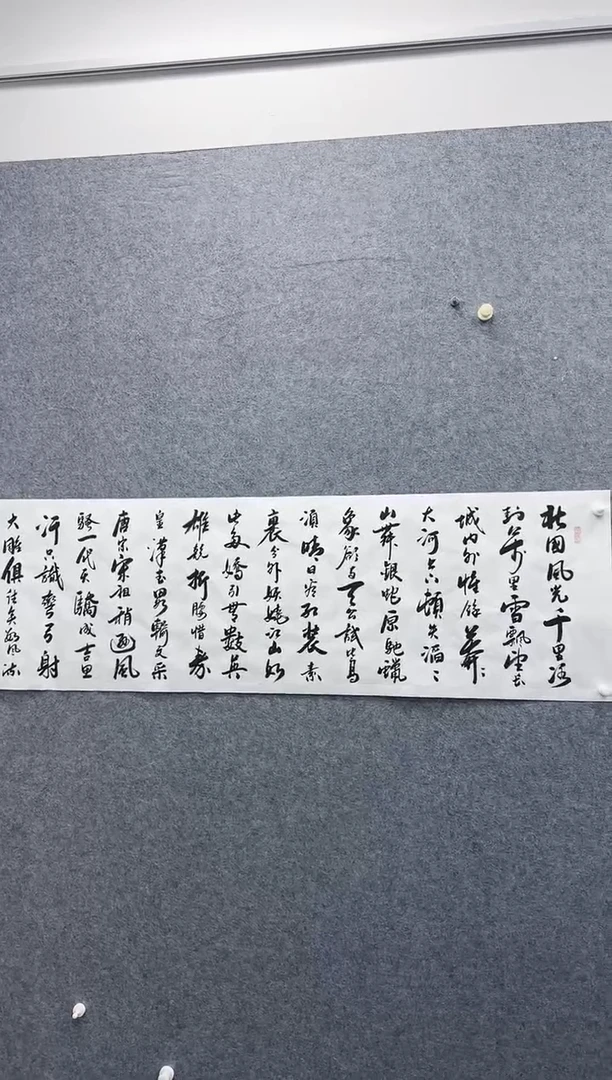 北国风光千里冰
封万里雪飘望长
城内外惟馀莽〻
大河上下顿失滔〻
山舞银蛇原驰蠟
象欲与天公试比高
须晴日看红装素
裹分外妖娆江山如
此多嬌引無數英
雄竞折腰惜秦
皇漢武略輸文采
唐宗宋祖稍逊风
骚一代天驕成吉思
汗只識彎弓射
大雕俱往矣数风流